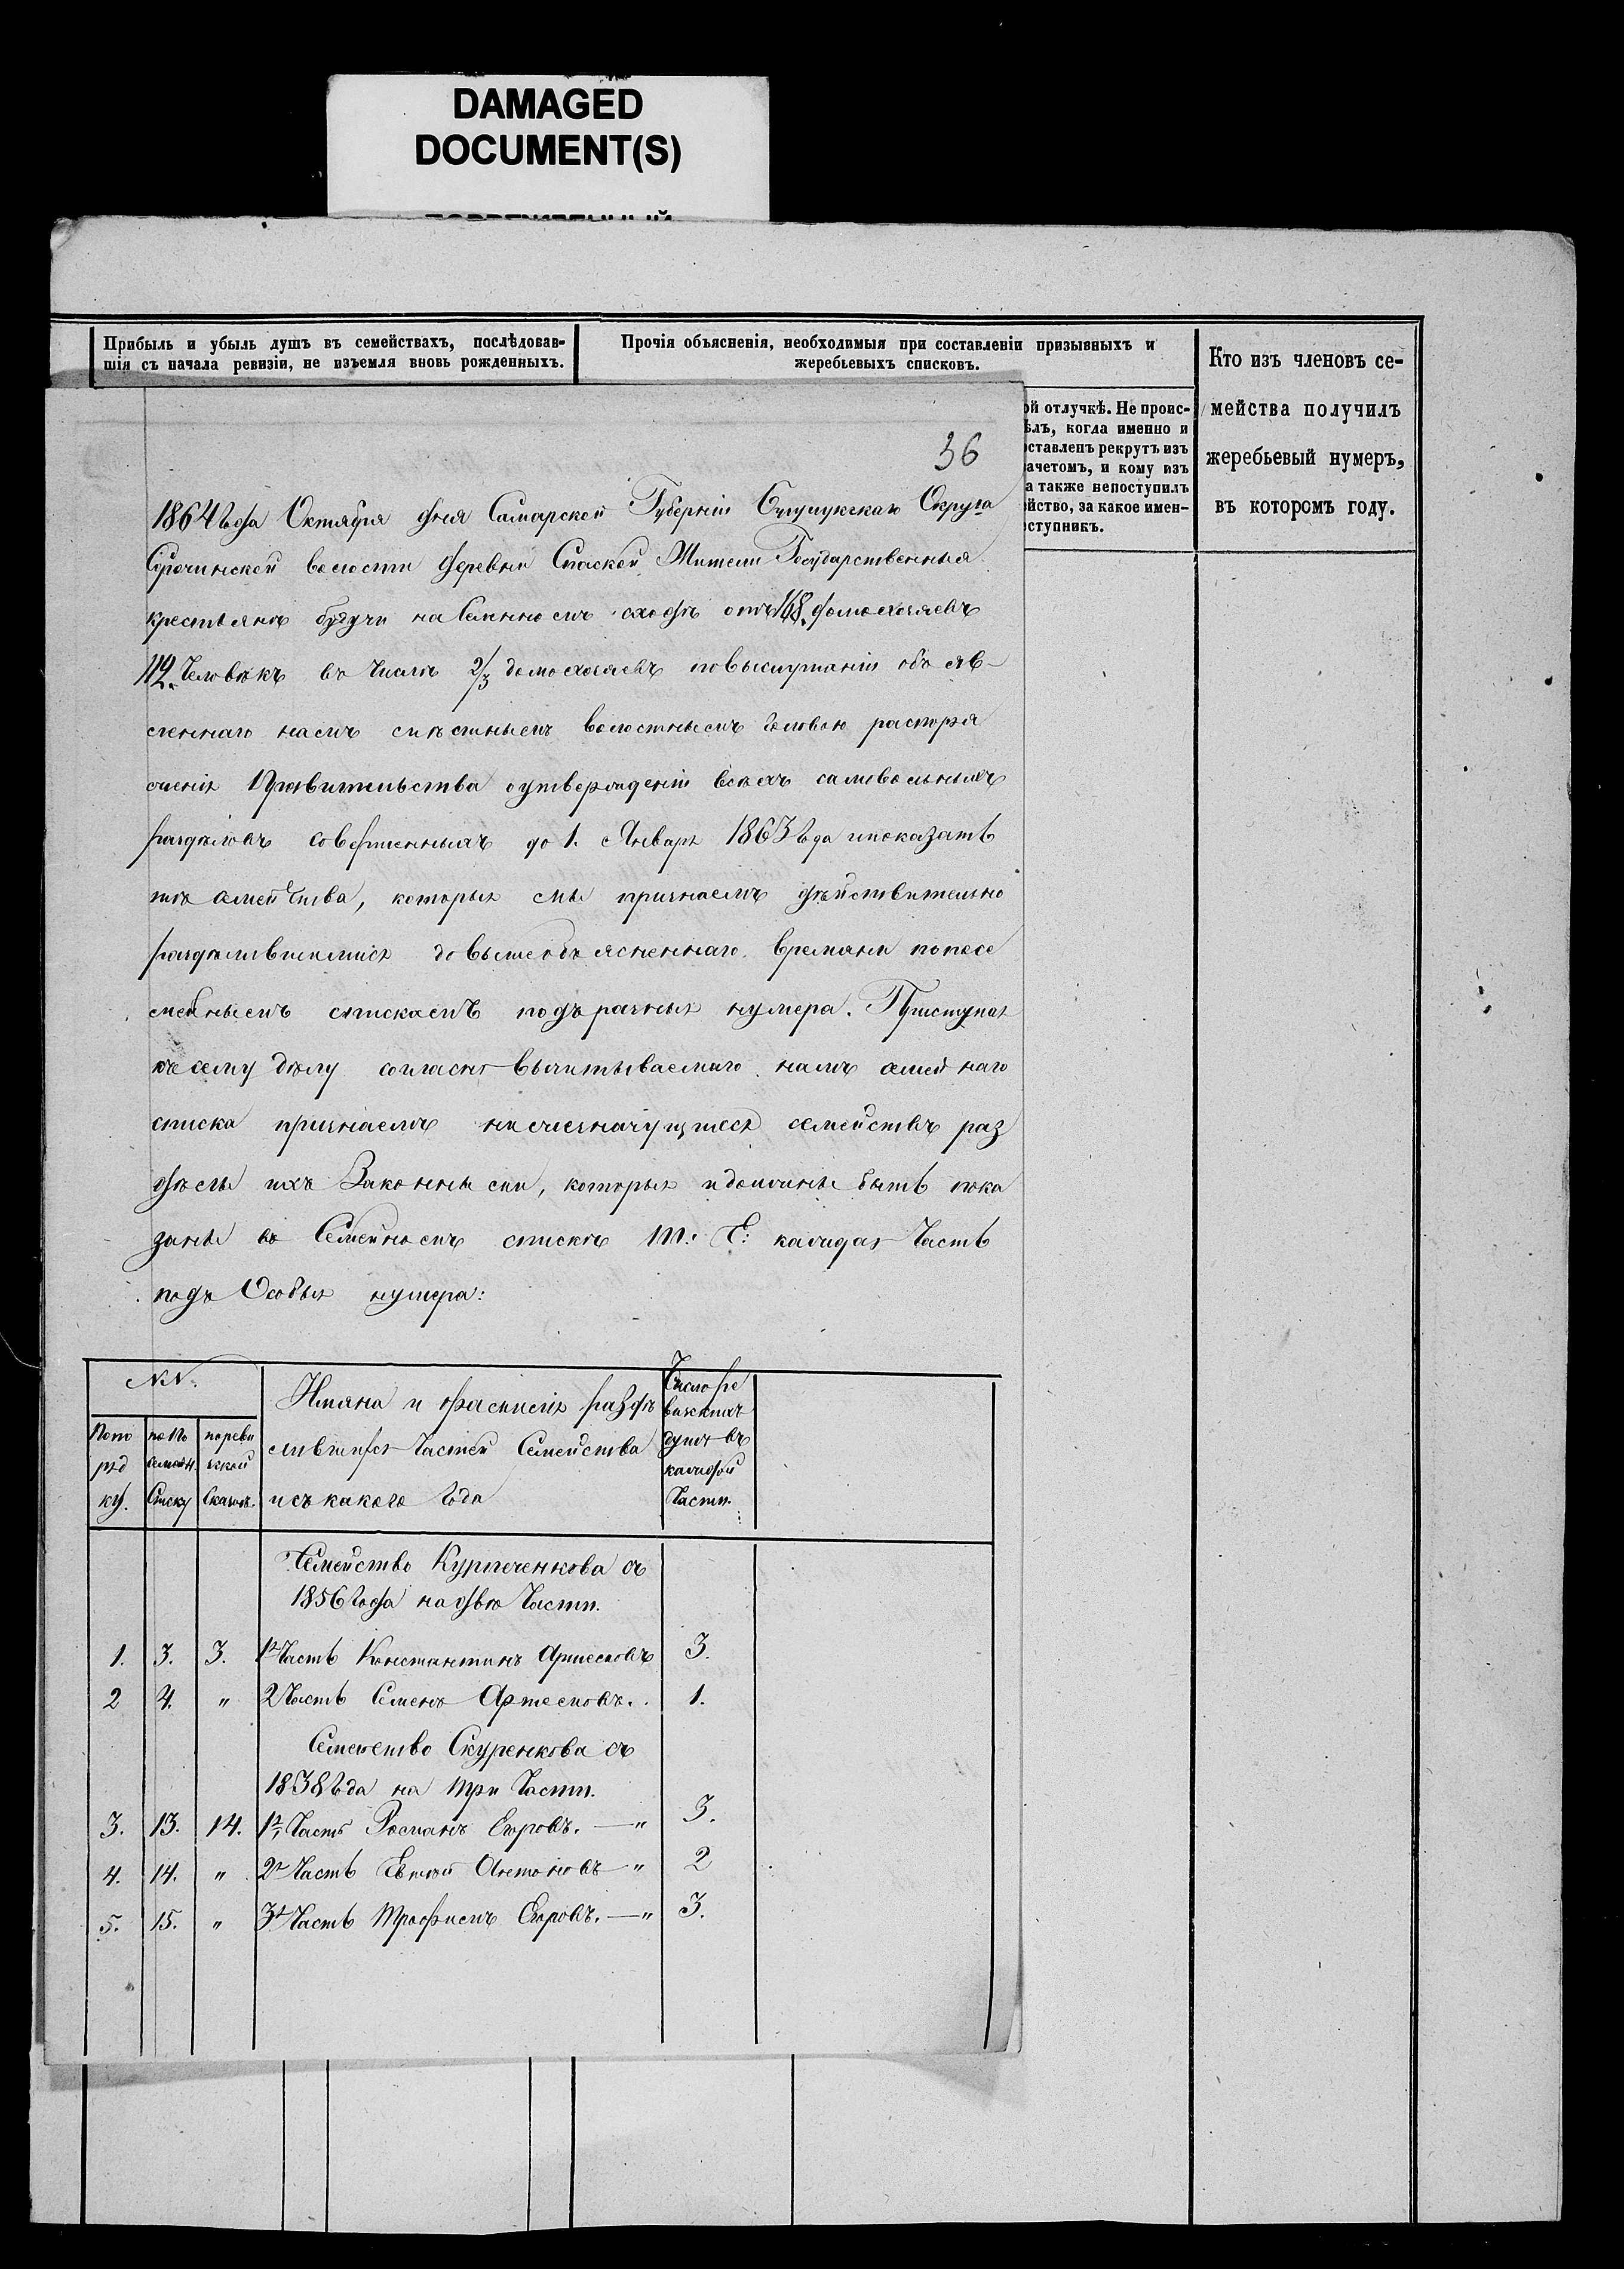 DAMAGED
DOCUMENT(S)
Прибыль и убыль душъ въ семействахъ, послѣдовав-
шія съ начала ревизіи, не изъемля вновь рожденныхъ.
Прочія объясненія, необходимыя при составленіи призывныхъ и
жеребьевыхъ списковъ.
Кто изъ членовъ се-
мейства получилъ
жеребьевый нумеръ,
въ которомъ году.
ой отлучкѣ. Не проис-
ѣлъ, когда именно и
оставленъ рекрутъ изъ
ачетомъ, и кому изъ
а также непоступилъ
йство, за какое имен-
оступникъ.
36
1864 Года Октября дня Самарской Губерніи Бузулукскаго Округа
Сорочинской волости деревни Спаской Жители Государственныя
крестьянъ будучи на Семинномъ сходѣ отъ 168. домохозяевъ
112. Человѣкъ въ числѣ 2/3 домохозяевъ повыслушаніи объяв-
леннаго намъ мѣстнымъ волостнымъ Головою распоря
женія Правительства о утвержденіи всѣхъ самовольныхъ
раздѣловъ совершенныхъ до 1. Января 1863 Года и показать
тѣ семейства, которыя мы признаемъ дѣйствительно
раздѣлившимися до вышеобъясненнаго времяни по посе
мейнымъ спискамъ подъ разныя нумера. Приступая
къ сему дѣлу согласно вычитываемаго намъ семейнаго
списка признаемъ нижеозначущиеся семействъ раз
дѣлы ихъ Законными, которыя и должны быть пока
заны въ Семейномъ спискѣ т: е: каждая Часть
подъ Особыя нумера:
NN.
По по
ряд
ку.
по По
семейн.
Списку
по реви
зской
Сказкѣ.
Имяна и Фамиліи раздѣ
лившихся Частей Семейства
и съ какого Года
Число ре
визскихъ
душъ въ
каждой
Части.
Семейство Курпеченкова съ
1856 Года на двѣ Части.
1. 3. 3. 1я Часть Константинъ Артемовъ 3.
2 4. " 2 Часть Семенъ Артемовъ. 1.
Семейство Скуренкова съ
1838 Года на три Части.
3. 13. 14. 1я Часть Романъ Егоровъ. — " 3.
4. 14. " 2я Часть Антоновъ " 2
5. 15. " 3я Часть Трофимъ Егоровъ. — " 3.